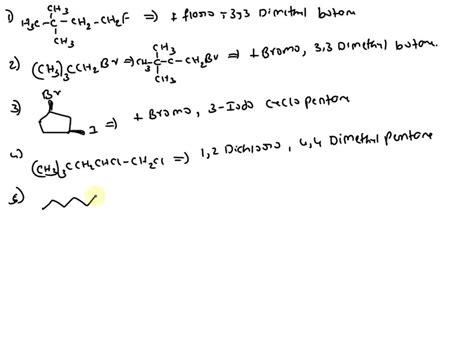 1) H3C-C-CH2-CH2F ⇒ 1 floro -3,3 Dimethyl butane
CH3
CH3
2) (CH3)3CCH2Br ⇒ CH3-C-C-CH2Br ⇒ 1 Bromo, 3,3 Dimethyl butane.
CH3
CH3
3) Br
I ⇒ 1 Bromo, 3-Iodo cyclo pentane
4) (CH3)3CCH2CHCl-CH2Cl ⇒ 1,2 Dichloro, 4,4 Dimethyl Pentane
5)